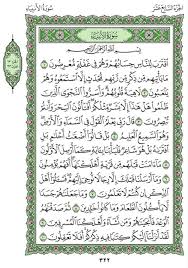 الجزء السابع عشر
سورة الأنبياء
سُورَةُ الأَنبِيَاءِ
بِسْمِ ٱللَّهِ ٱلرَّحْمَٰنِ ٱلرَّحِيمِ
ٱقْتَرَبَ لِلنَّاسِ حِسَابُهُمْ وَهُمْ فِي غَفْلَةٍ مُّعْرِضُونَ ١
مَا يَأْتِيهِم مِّن ذِكْرٍ مِّن رَّبِّهِم مُّحْدَثٍ إِلَّا ٱسْتَمَعُوهُ وَهُمْ
يَلْعَبُونَ ٢ لَاهِيَةً قُلُوبُهُمْ وَأَسَرُّوا۟ ٱلنَّجْوَى ٱلَّذِينَ ظَلَمُوا۟
هَلْ هَٰذَآ إِلَّا بَشَرٌ مِّثْلُكُمْ أَفَتَأْتُونَ ٱلسِّحْرَ وَأَنتُمْ
تُبْصِرُونَ ٣ قَالَ رَبِّي يَعْلَمُ ٱلْقَوْلَ فِي ٱلسَّمَآءِ وَٱلْأَرْضِ
وَهُوَ ٱلسَّمِيعُ ٱلْعَلِيمُ ٤ بَلْ قَالُوٓا۟ أَضْغَٰثُ أَحْلَٰمٍ بَلِ
ٱفْتَرَىٰهُ بَلْ هُوَ شَاعِرٌ فَلْيَأْتِنَا بِـَٔايَةٍ كَمَآ أُرْسِلَ ٱلْأَوَّلُونَ
٥ مَآ ءَامَنَتْ قَبْلَهُم مِّن قَرْيَةٍ أَهْلَكْنَٰهَآ أَفَهُمْ يُؤْمِنُونَ ٦
وَمَآ أَرْسَلْنَا قَبْلَكَ إِلَّا رِجَالًا نُّوحِيٓ إِلَيْهِمْ فَسْـَٔلُوٓا۟ أَهْلَ
ٱلذِّكْرِ إِن كُنتُمْ لَا تَعْلَمُونَ ٧ وَمَا جَعَلْنَٰهُمْ جَسَدًا
لَّا يَأْكُلُونَ ٱلطَّعَامَ وَمَا كَانُوا۟ خَٰلِدِينَ ٨ ثُمَّ صَدَقْنَٰهُمُ
ٱلْوَعْدَ فَأَنجَيْنَٰهُمْ وَمَن نَّشَآءُ وَأَهْلَكْنَا ٱلْمُسْرِفِينَ ٩
لَقَدْ أَنزَلْنَآ إِلَيْكُمْ كِتَٰبًا فِيهِ ذِكْرُكُمْ أَفَلَا تَعْقِلُونَ ١٠
٣٢٢